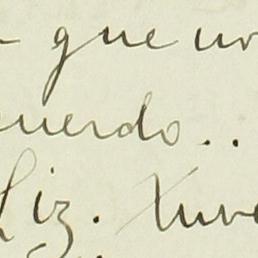 que un
uerdo..
Liz. Xuve